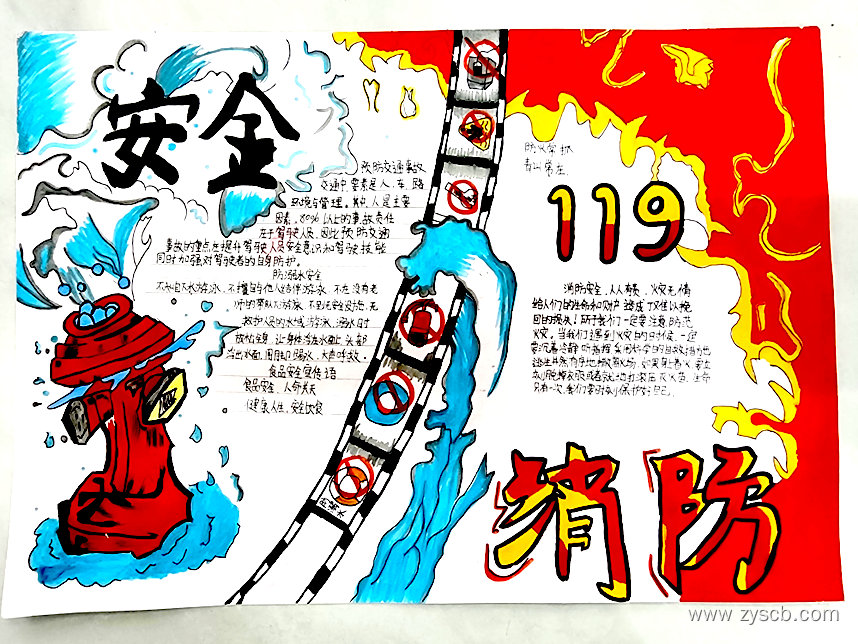 安全
预防交通事故
交通中要素是人、车、路
环境与管理，其中，人是主要
因素，80%以上的事故责任
在于驾驶人员、因此预防交通
事故的重点在提升驾驶人员安全意识和驾驶技能
同时加强对驾驶者的自身防护。
防溺水安全
不私自下水游泳、不擅自与他人结伴游泳、不在没有老
师的带队下游泳、不到无安全设施、无
救护人员的水域游泳、溺水时
放松全身，让身体浮在水面上，头部
浮出水面，用脚踢水，大声呼救。
食品安全宣传语
食品安全、人命关天
健康人生、安全饮食
防火常抓
119
消防安全，人人有责，火灾无情
给人们的生命和财产造成了难以挽
回的损失！所于我们一定要注意防范
火灾。当我们遇到火灾的时候，一定
要沉着冷静听指挥
只有一次，我们要时刻保护好自己。
消防
www.zyscb.com